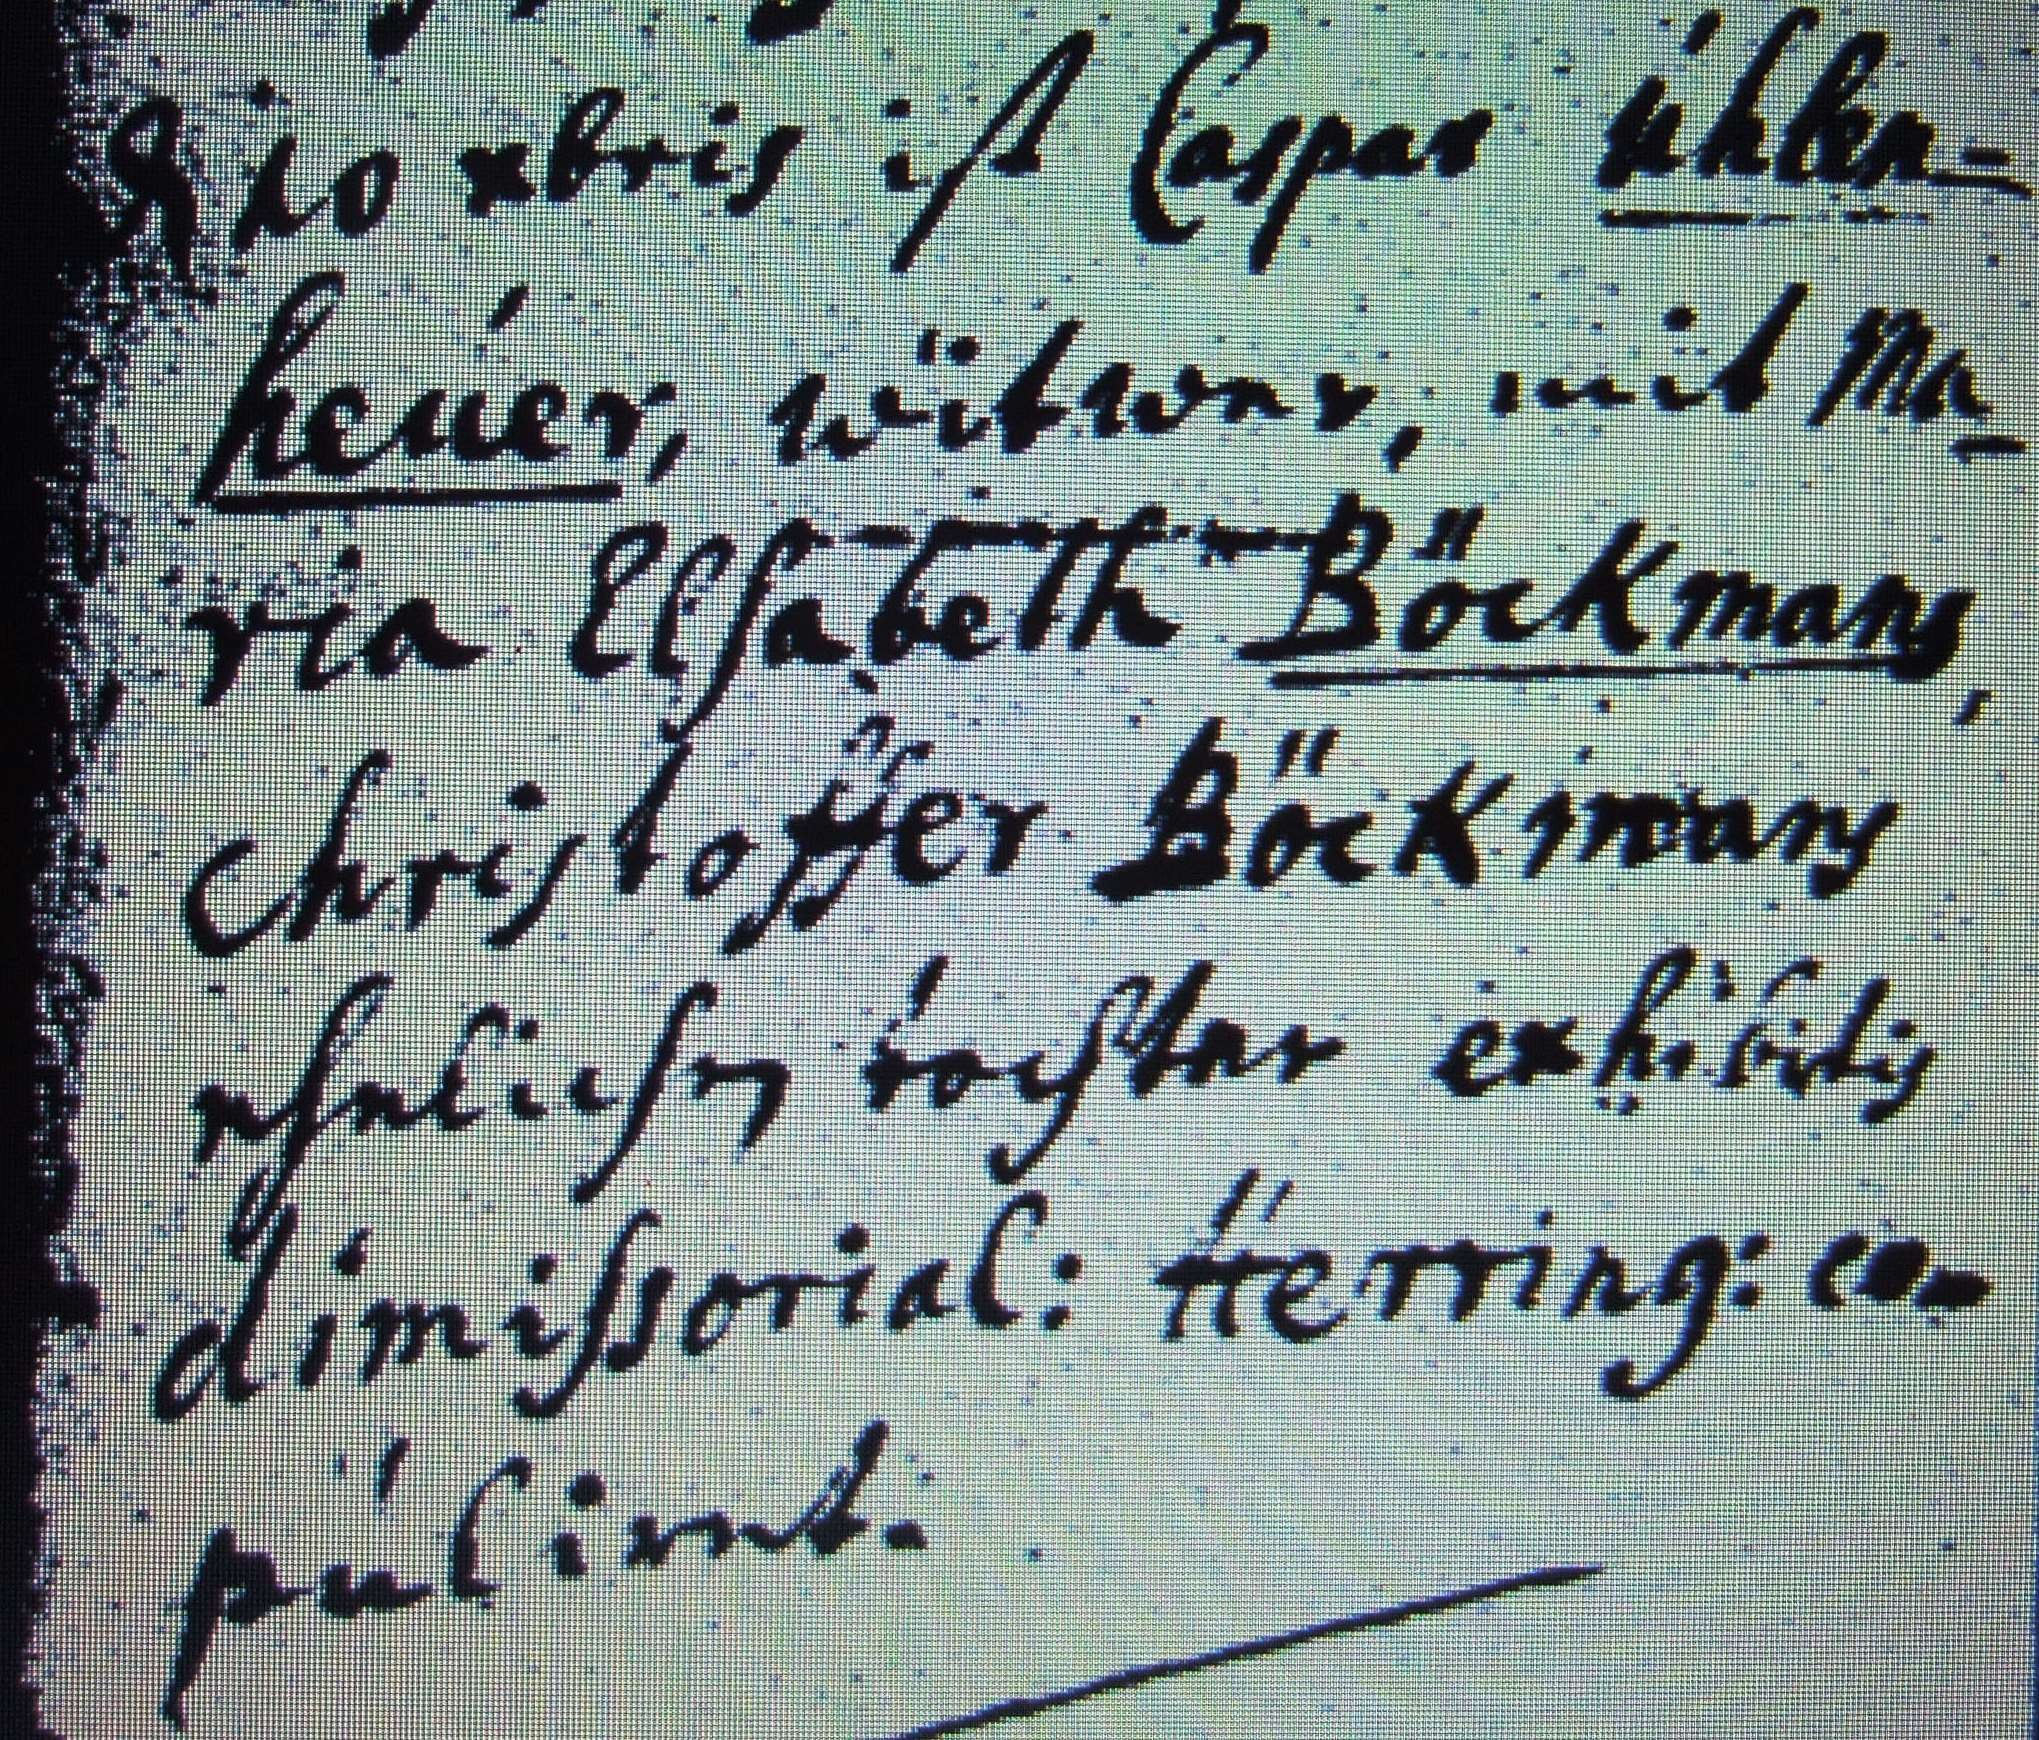 8vo xbris ist Caspar Uhlen-
heuer, witwer, mit Ma-
ria Elsabeth Böckmans,
Christoffer Böckmans
ehelichen tochter exhibitis
dimissorial: Herring: co-
pulirt.